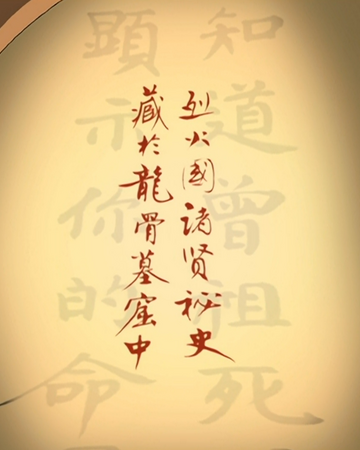 烈火國諸贤祕史
藏於龍骨墓窟中
知道曾祖死
顯示你的命